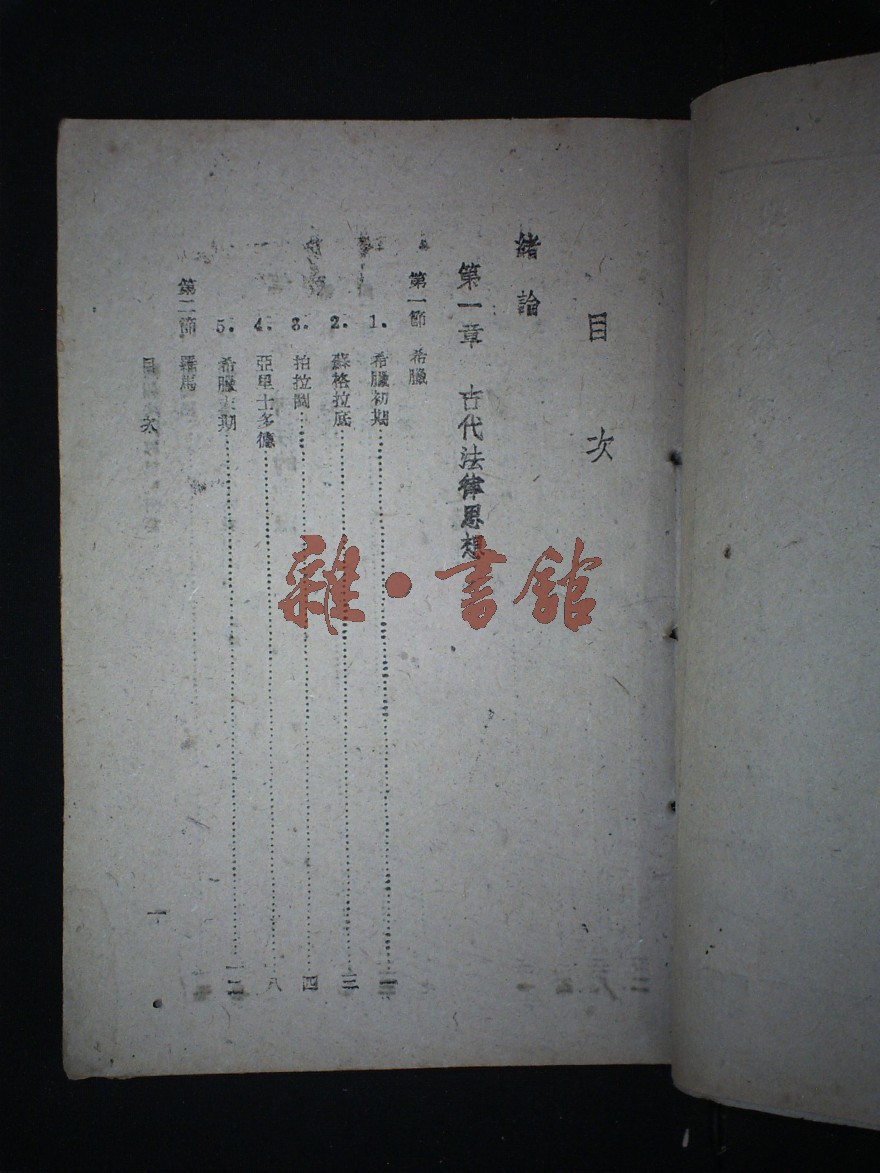 目次
緒論
第一章 古代法律思想
第一節 希臘
1. 希臘初期 一
2. 蘇格拉底 三
3. 拍拉圖 四
4. 亞里士多德 八
5. 希臘末期 一二
第二節 羅馬
目次 一
雜·書館